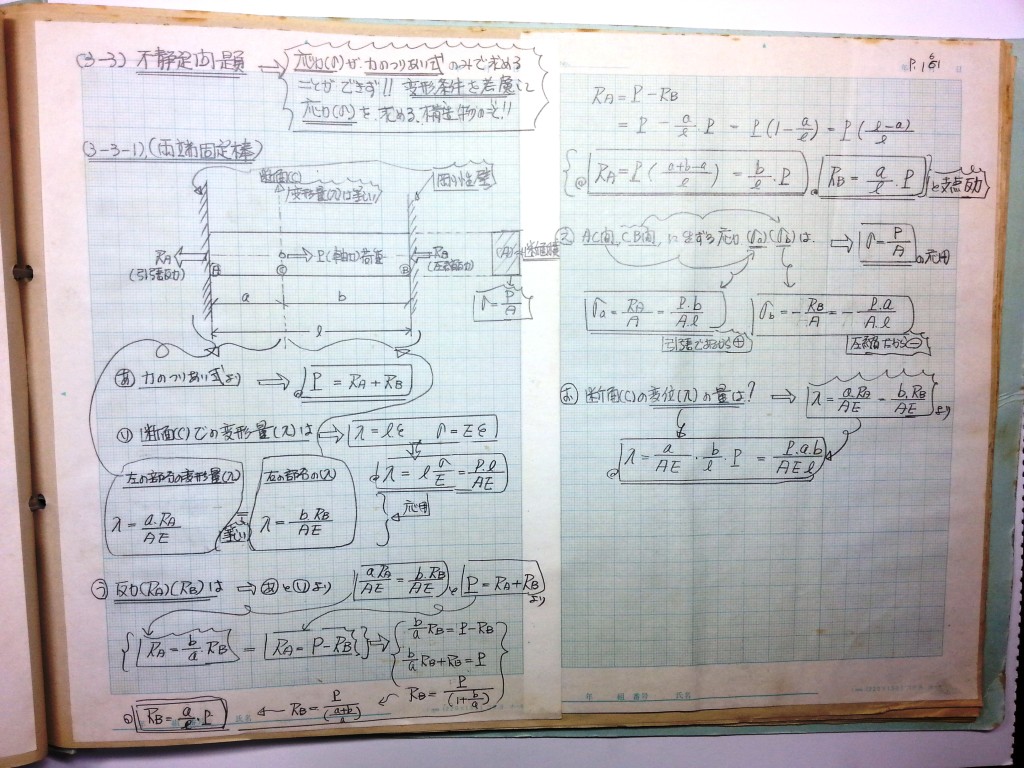 (3-3) 不静定問題 ⇒ 応力(σ)が、力のつりあい式のみで求める
ことができず!! 変形条件を考慮して
応力(σ)を求める、構造物のこと!!
(3-3-1),(両端固定棒)
断面(C)
変形量(λ)は等しい
剛性壁
RA
(引張反力)
A
C
P(軸力)荷重
B
RB
(圧縮反力)
(A)=断面積
σ = P/A
a
b
l
あ 力のつりあい式より ⇒ P = RA + RB
い 断面(C)での変形量(λ)は ⇒ λ = lε σ = Eε
λ = l σ/E = P.l/AE
応用
左の部分の変形量(λ)
λ = a.RA/AE
=
等しい
右の部分の(λ)
λ = b.RB/AE
う 反力(RA)(RB)は ⇒ あといより a RA/AE = b.RB/AE と P = RA + RB より
{ RA = b/a.RB = RA = P - RB } ⇒ b/a RB = P - RB
b/a RB + RB = P
RB = P/(1+b/a)
← RB = P/((a+b)/a)
← RB = a/l.P
氏名
P.181
RA = P - RB
= P - a/l.P = P(1 - a/l) = P(l-a/l)
{ RA = P(a+b-a/l) = b/l.P , RB = a/l.P } と支点反力
え AC間, CB間, に生ずる応力(σa)(σb)は. ⇒ σ = P/A の応用
σa = RA/A = P.b/A.l
引張だから⊕
σb = -RB/A = -P.a/A.l
圧縮だから⊖
お 断面(C)の変位(λ)の量は? ⇒ λ = a RA/AE = b.RB/AE より
λ = a/AE . b/l . P = P.a.b/AE l
年 組 番号 氏名